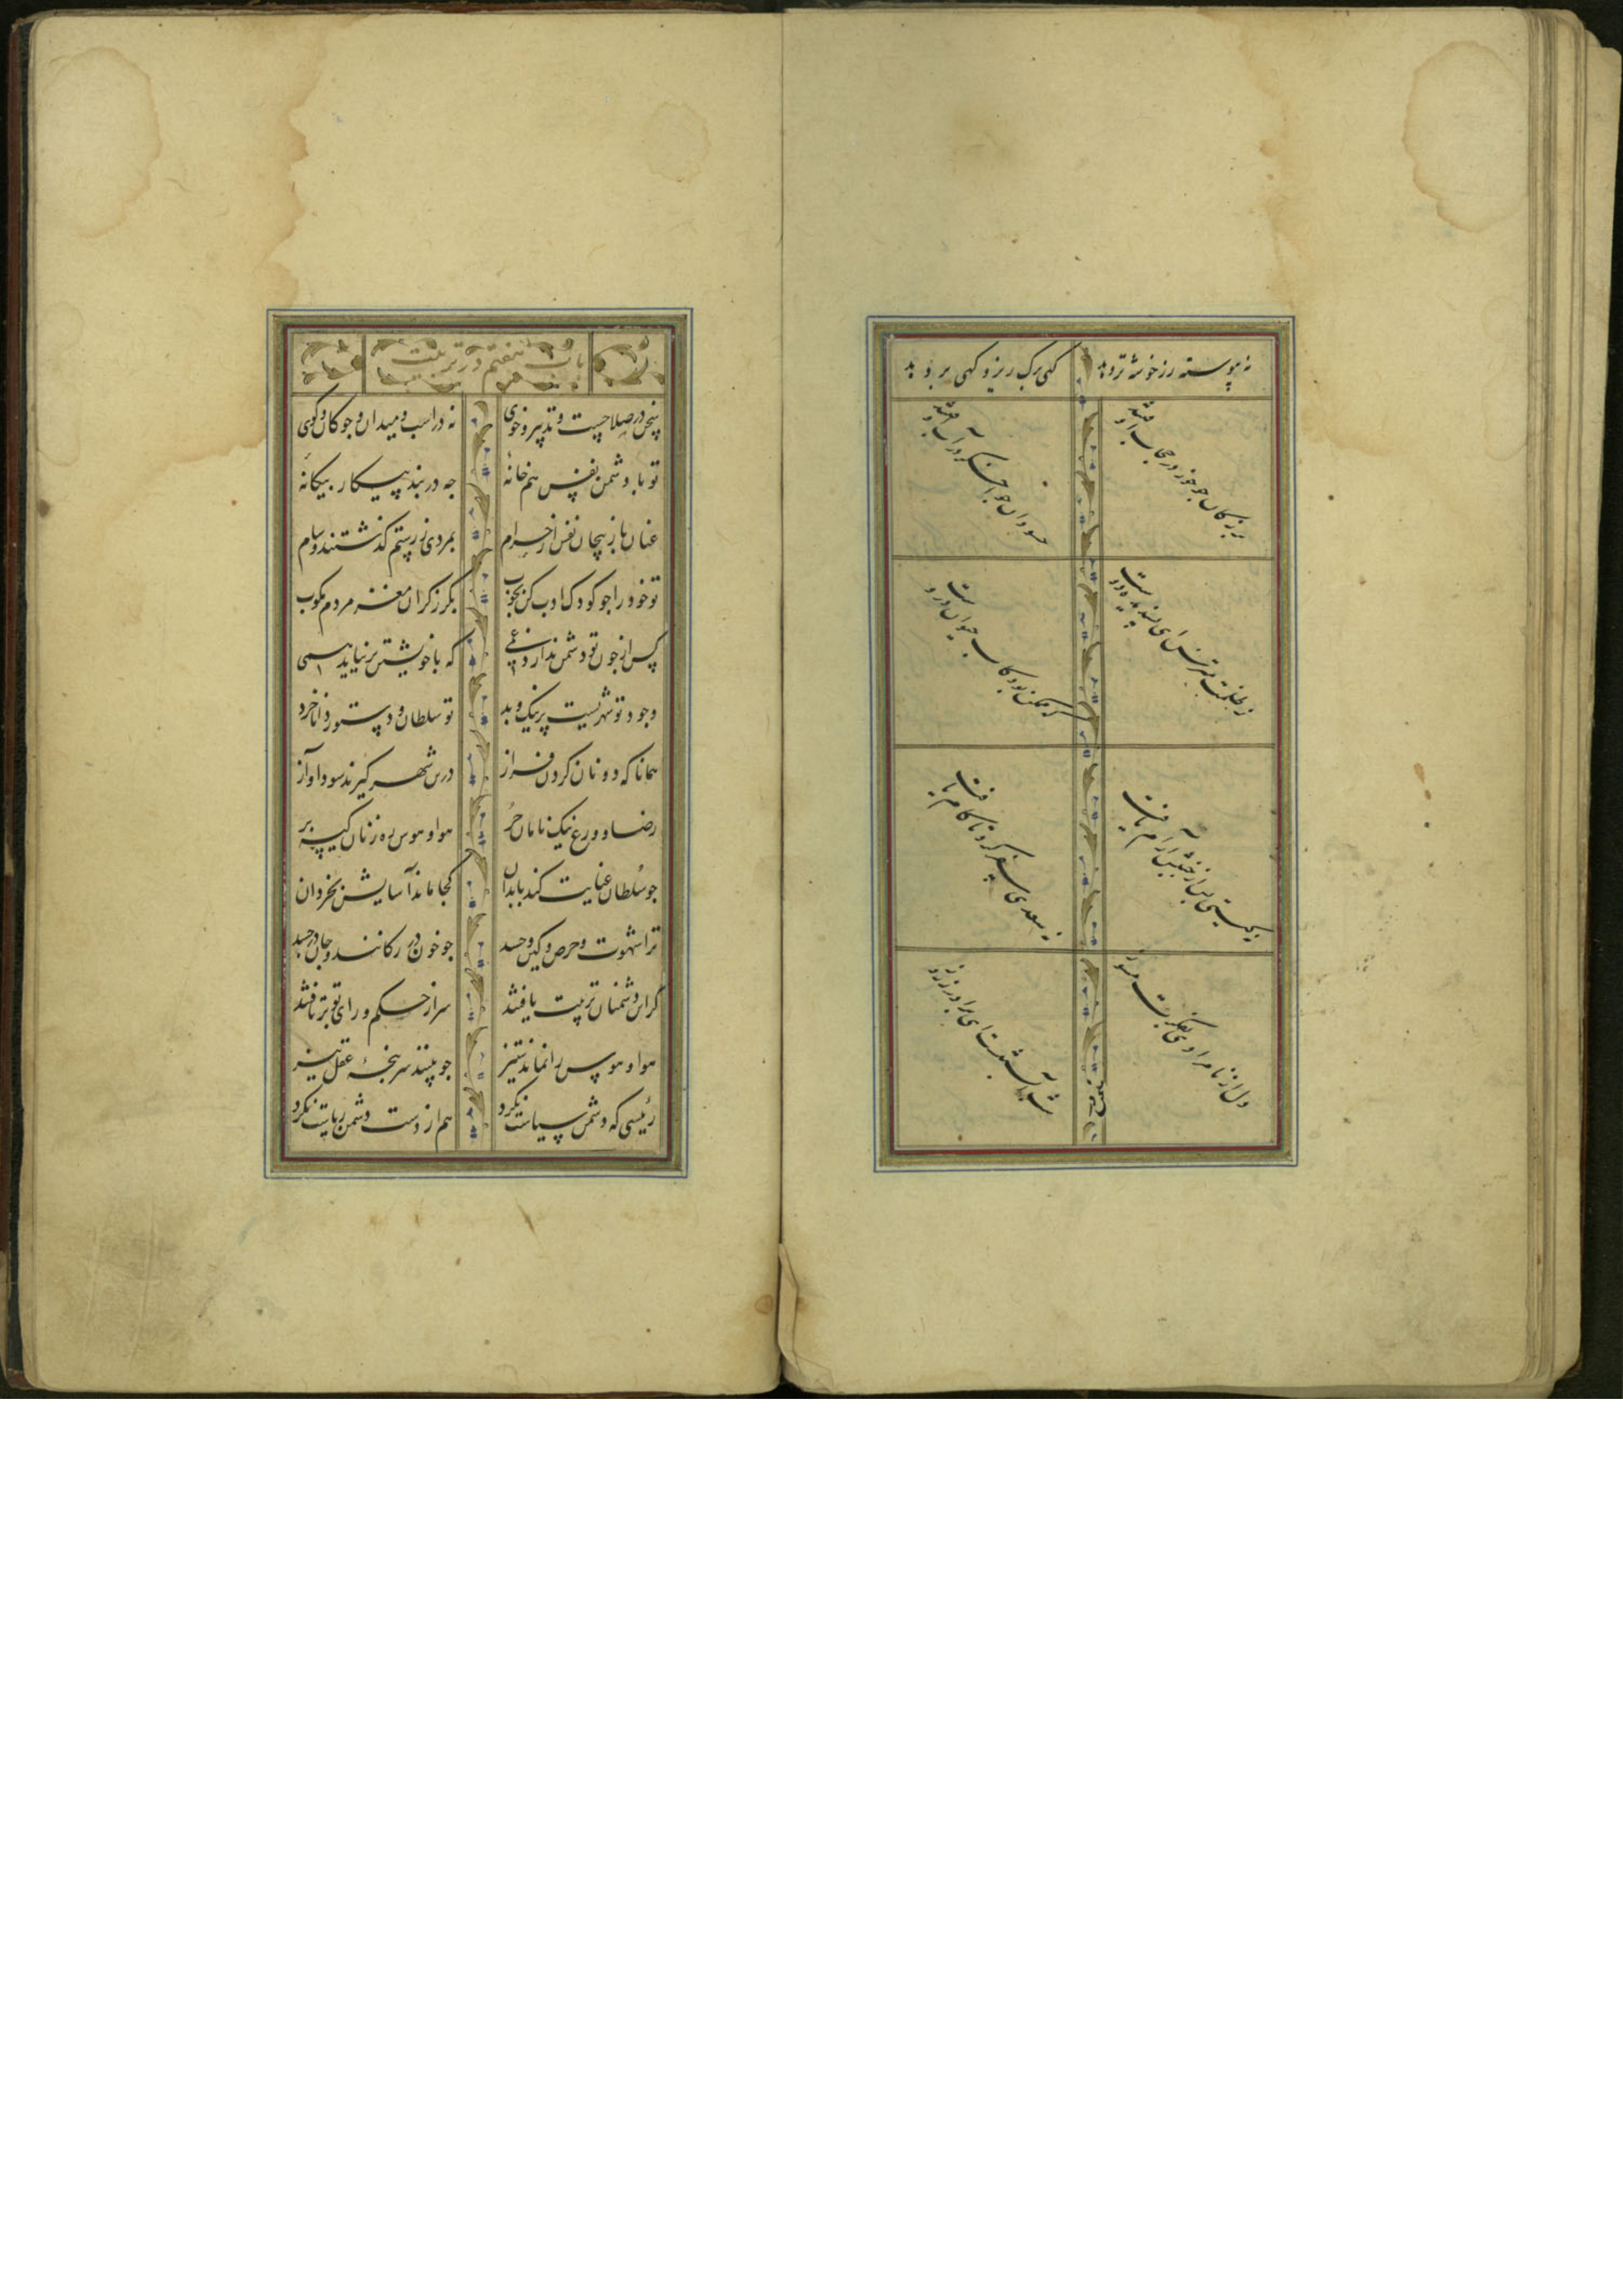 نه پیوسته رز خوشه تر دهد گهی برک ریزد کهی بر دهد
بزرکان جو خور در حجاب اوفتند
حسودان جو اخکر در آب اوفتند
ز ظلمت مترس ای پسندیده دوست
که ممکن بود کاب حیوان دروست
نه کیتی پس از جنبش آرام یافت
نه سعدی سفر کرد تا کام یافت
دل از نامرادی بفکرت مسوز
شب آبستنست ای برادر بروز
باب هفتم در تربیت
سخن در صلاحست و تدبیر و خوی نه در اسب و میدان و جوکان و کوی
تو با دشمن نفس هم خانهٔ جه در بند پیکار بیکانهٔ
عنان باز پیچان نفس از حرام بمردی ز رستم کذشتند و سام
تو خود را جو کودک ادب کن بجوب بکرز کران مغز مردم مکوب
کس از جون تو دشمن ندارد غمی که با خویشتن بر نیاید همی
وجود تو شهریست پر نیک و بد تو سلطان و دستور دانا خرد
همانا که دونان کردن فراز درین شهر کیرند سودا و آز
رضا و ورع نیک نامان حر هوا و هوس ره زنان کیسه بر
جو سلطان عنایت کند با بدان کجا ماند آسایش بخردان
ترا شهوت و حرص و کین و حسد جو خون در رکانند و جان در جسد
کر این دشمنان تربیت یافتند سر از حکم و رای تو بر تافتند
هوا و هوس را نماند ستیز جو بینند سر پنجهٔ عقل تیز
رئیسی که دشمن سیاست نکرد هم از دست دشمن ریاست نکرد